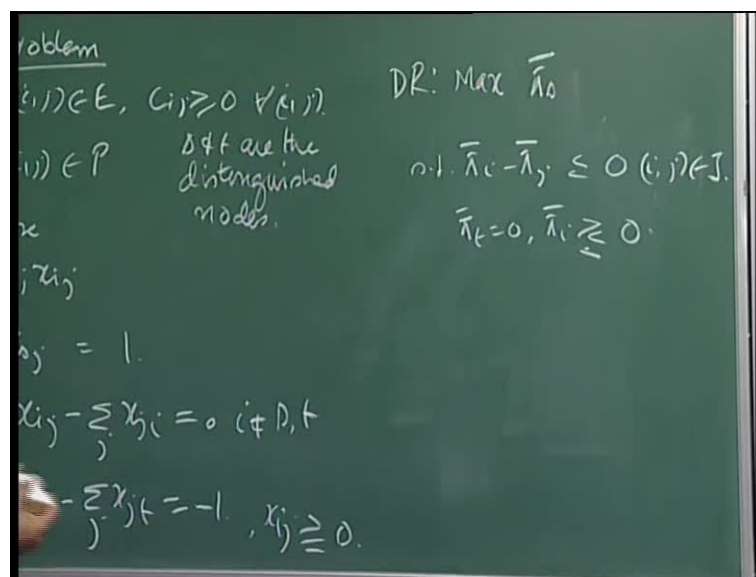 roblem
(i,j)∈E, Cij ≥ 0 ∀(i,j).
i,j) ∈ P
s & t are the
distenguished
nodes.
j xij
sj = 1.
xij - Σj xji = 0 i ≠ s, t
- Σj xjt = -1. , xij ≧ 0.
DR: Max π̄s
s.t. π̄i - π̄j ≤ 0 (i,j)∈J.
π̄t = 0, π̄i ≷ 0.